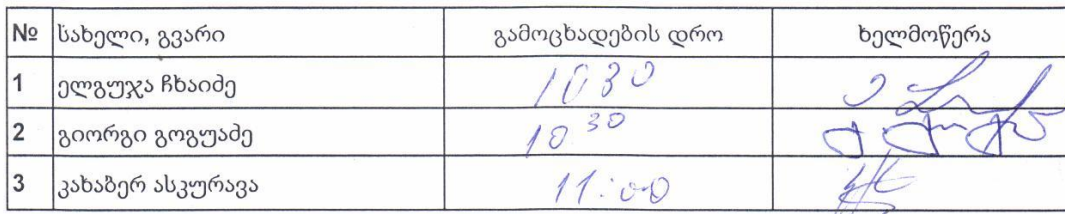 № სახელი, გვარი გამოცხადების დრო ხელმოწერა
1 ელგუჯა ჩხაიძე 1030
2 გიორგი გოგუაძე 10 30
3 კახაბერ ასკურავა 11:00